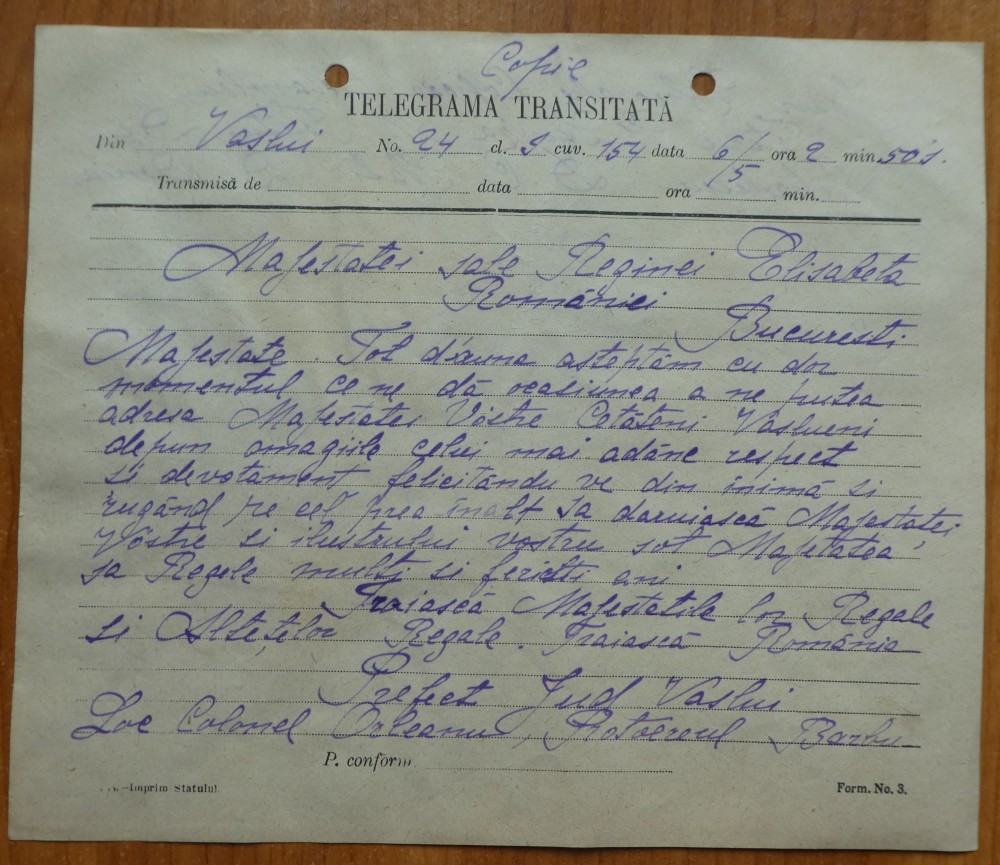 Copie
TELEGRAMA TRANSITATĂ
Din Vaslui No. 24 cl. 9 cuv. 154 data 6/5 ora 2 min. 50 s.
Transmisă de data ora min.
Majestatei sale Reginei Elisabeta
României
Bucuresti
Majestate. Tot d'auna asteptăm cu dor
momentul ce ne dă ocasiunea a ne putea
adresa Majestatei Vóstre Cetăteni Vaslueni
depun omagiile celui mai adânc respect
si devotament felicitându ve din inimă si
rugând pe cel prea inalt sa daruiască Majestatei
Vóstre si ilustrului vostru sot Majestatea
sa Regele multi si fericiti ani
Traiască Majestatile lor Regale
si Altețelor Regale. Traiască România
Prefect Jud Vaslui
Loc Colonel Orleanu, Protoereul Barbu
P. conform
Imprim Statului
Form. No. 3.